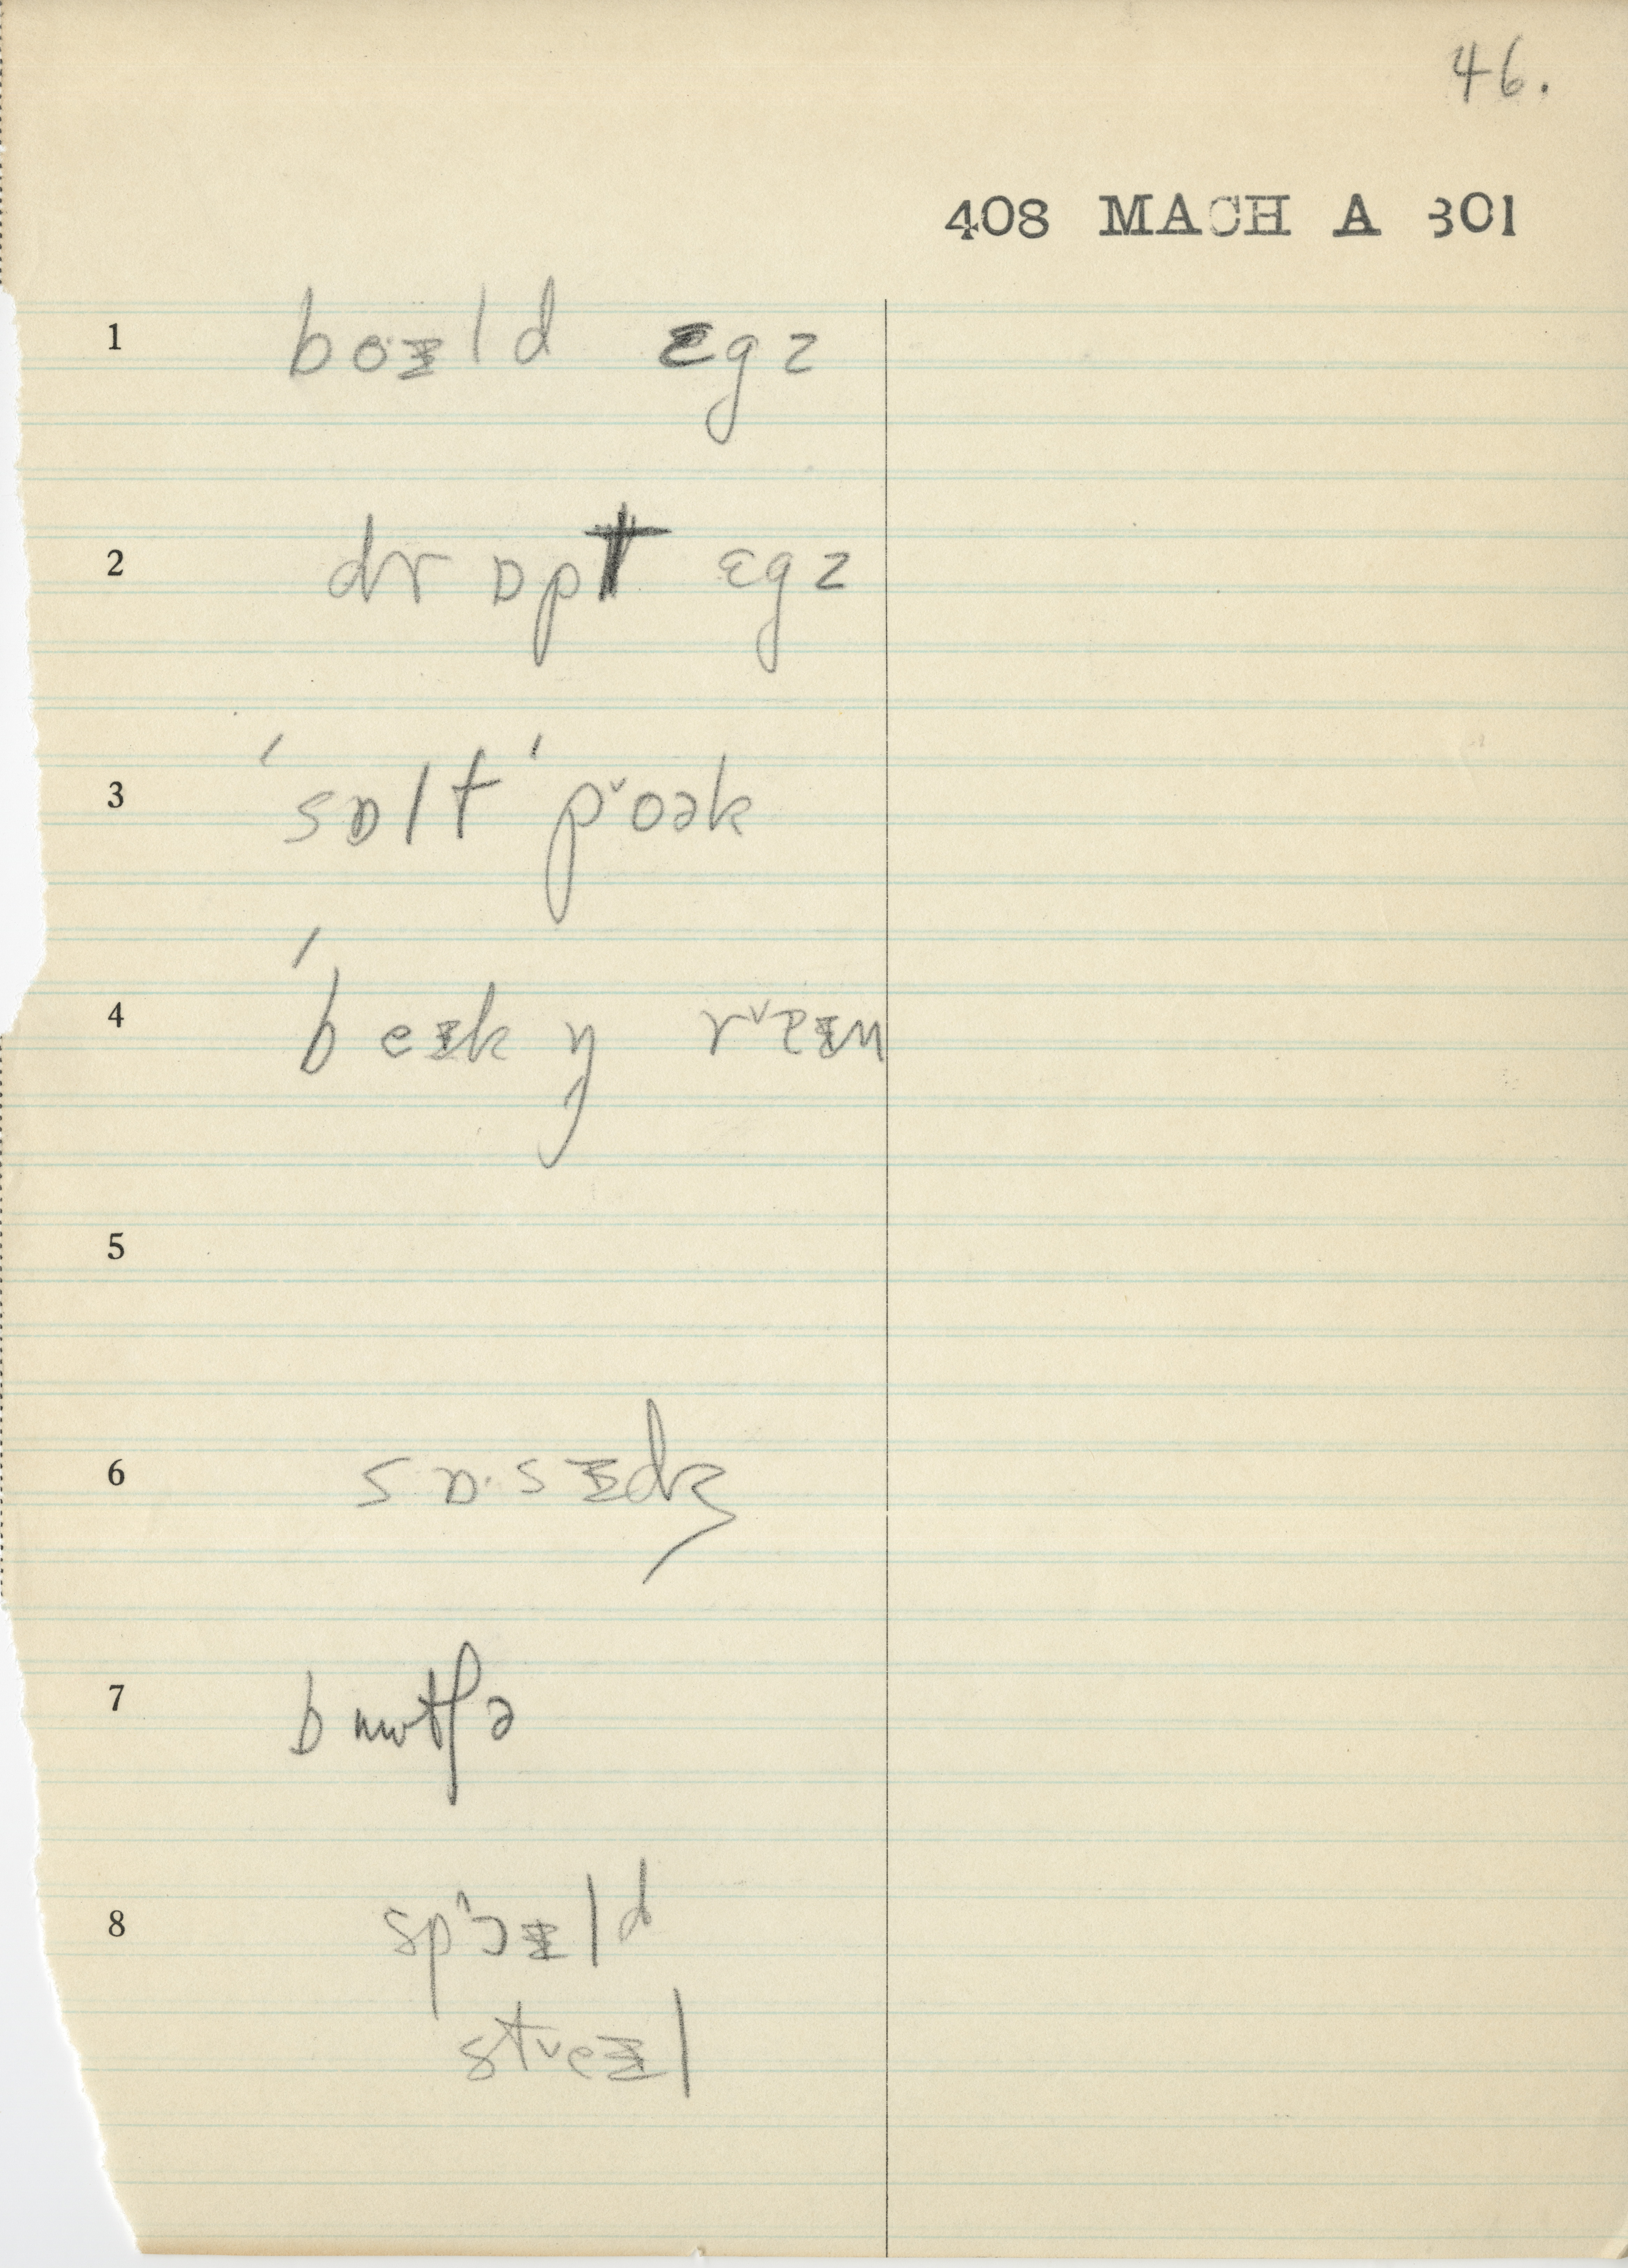 46.
408 MACH A 301
1 boᵻld ɛgz
2 drɒpt ɛgz
3 ˈsɒlt ˈp˅oək
4 ˈbeᵻkŋ r˅eᵻn
5
6 sɒ·sᵻdʒ
7 bɯtʃə
8 sp^ɔᵻld
st˅eᵻl